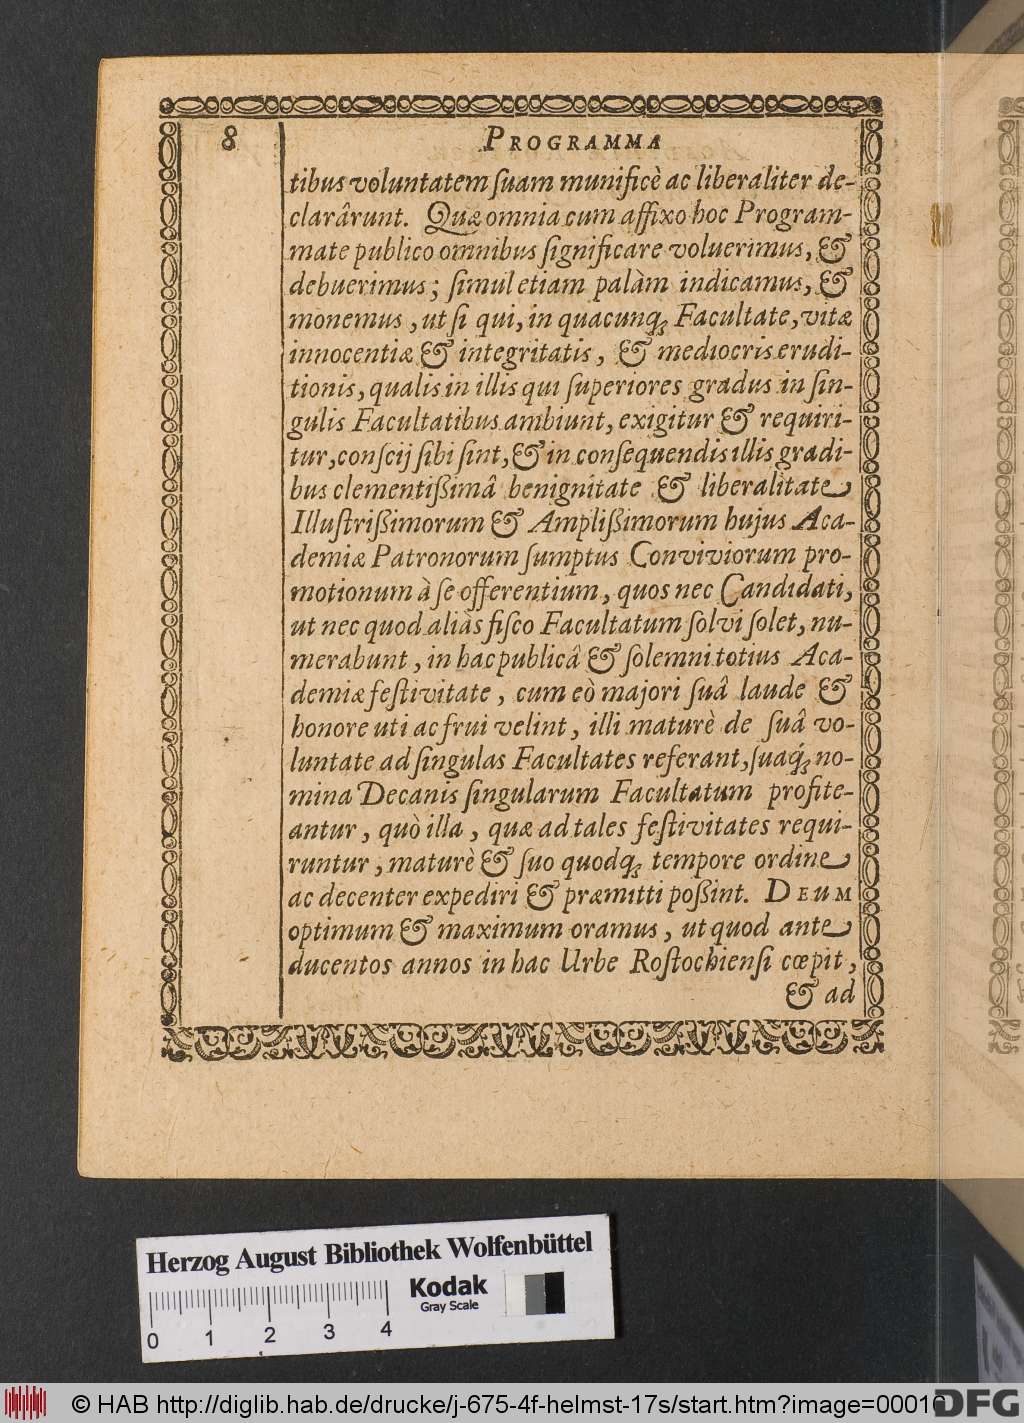 8
PROGRAMMA
tibus voluntatem ſuam munificè ac liberaliter de-
clarârunt. Quæ omnia cum affixo hoc Program-
mate publico omnibus ſignificare voluerimus, &
debuerimus; ſimul etiam palàm indicamus, &
monemus, ut ſi qui, in quacunq́ꝫ Facultate, vitæ
innocentiæ & integritatis, & mediocris erudi-
tionis, qualis in illis qui ſuperiores gradus in ſin-
gulis Facultatibus ambiunt, exigitur & requiri-
tur, conſcij ſibi ſint, & in conſequendis illis gradi-
bus clementißimâ benignitate & liberalitate
Illuſtrißimorum & Amplißimorum hujus Aca-
demiæ Patronorum ſumptus Conviviorum pro-
motionum à ſe offerentium, quos nec Candidati,
ut nec quod aliàs fiſco Facultatum ſolvi ſolet, nu-
merabunt, in hac publicâ & ſolemni totius Aca-
demiæ feſtivitate, cum eò majori ſuâ laude &
honore uti ac frui velint, illi maturè de ſuâ vo-
luntate ad ſingulas Facultates referant, ſuaq́ꝫ no-
mina Decanis ſingularum Facultatum profite-
antur, quò illa, quæ ad tales feſtivitates requi-
runtur, maturè & ſuo quodqꝫ tempore ordine
ac decenter expediri & præmitti poßint. DEUM
optimum & maximum oramus, ut quod ante
ducentos annos in hac Urbe Roſtochienſi cœpit,
& ad
Herzog August Bibliothek Wolfenbüttel
Kodak
Gray Scale
0 1 2 3 4
© HAB http://diglib.hab.de/drucke/j-675-4f-helmst-17s/start.htm?image=00016
DFG